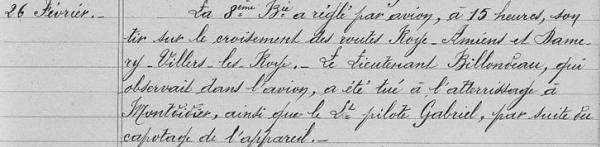 26 Février._ La 8ème Bie a réglé par avion, à 15 heures, son
tir sur le croisement des routes Roye-Amiens et Dame-
ry-Villers-les-Roye._ Le Lieutenant Billonneau, qui
observait dans l'avion, a été tué à l'atterrissage à
Montdidier, ainsi que le Lt pilote Gabriel, par suite du
capotage de l'appareil._